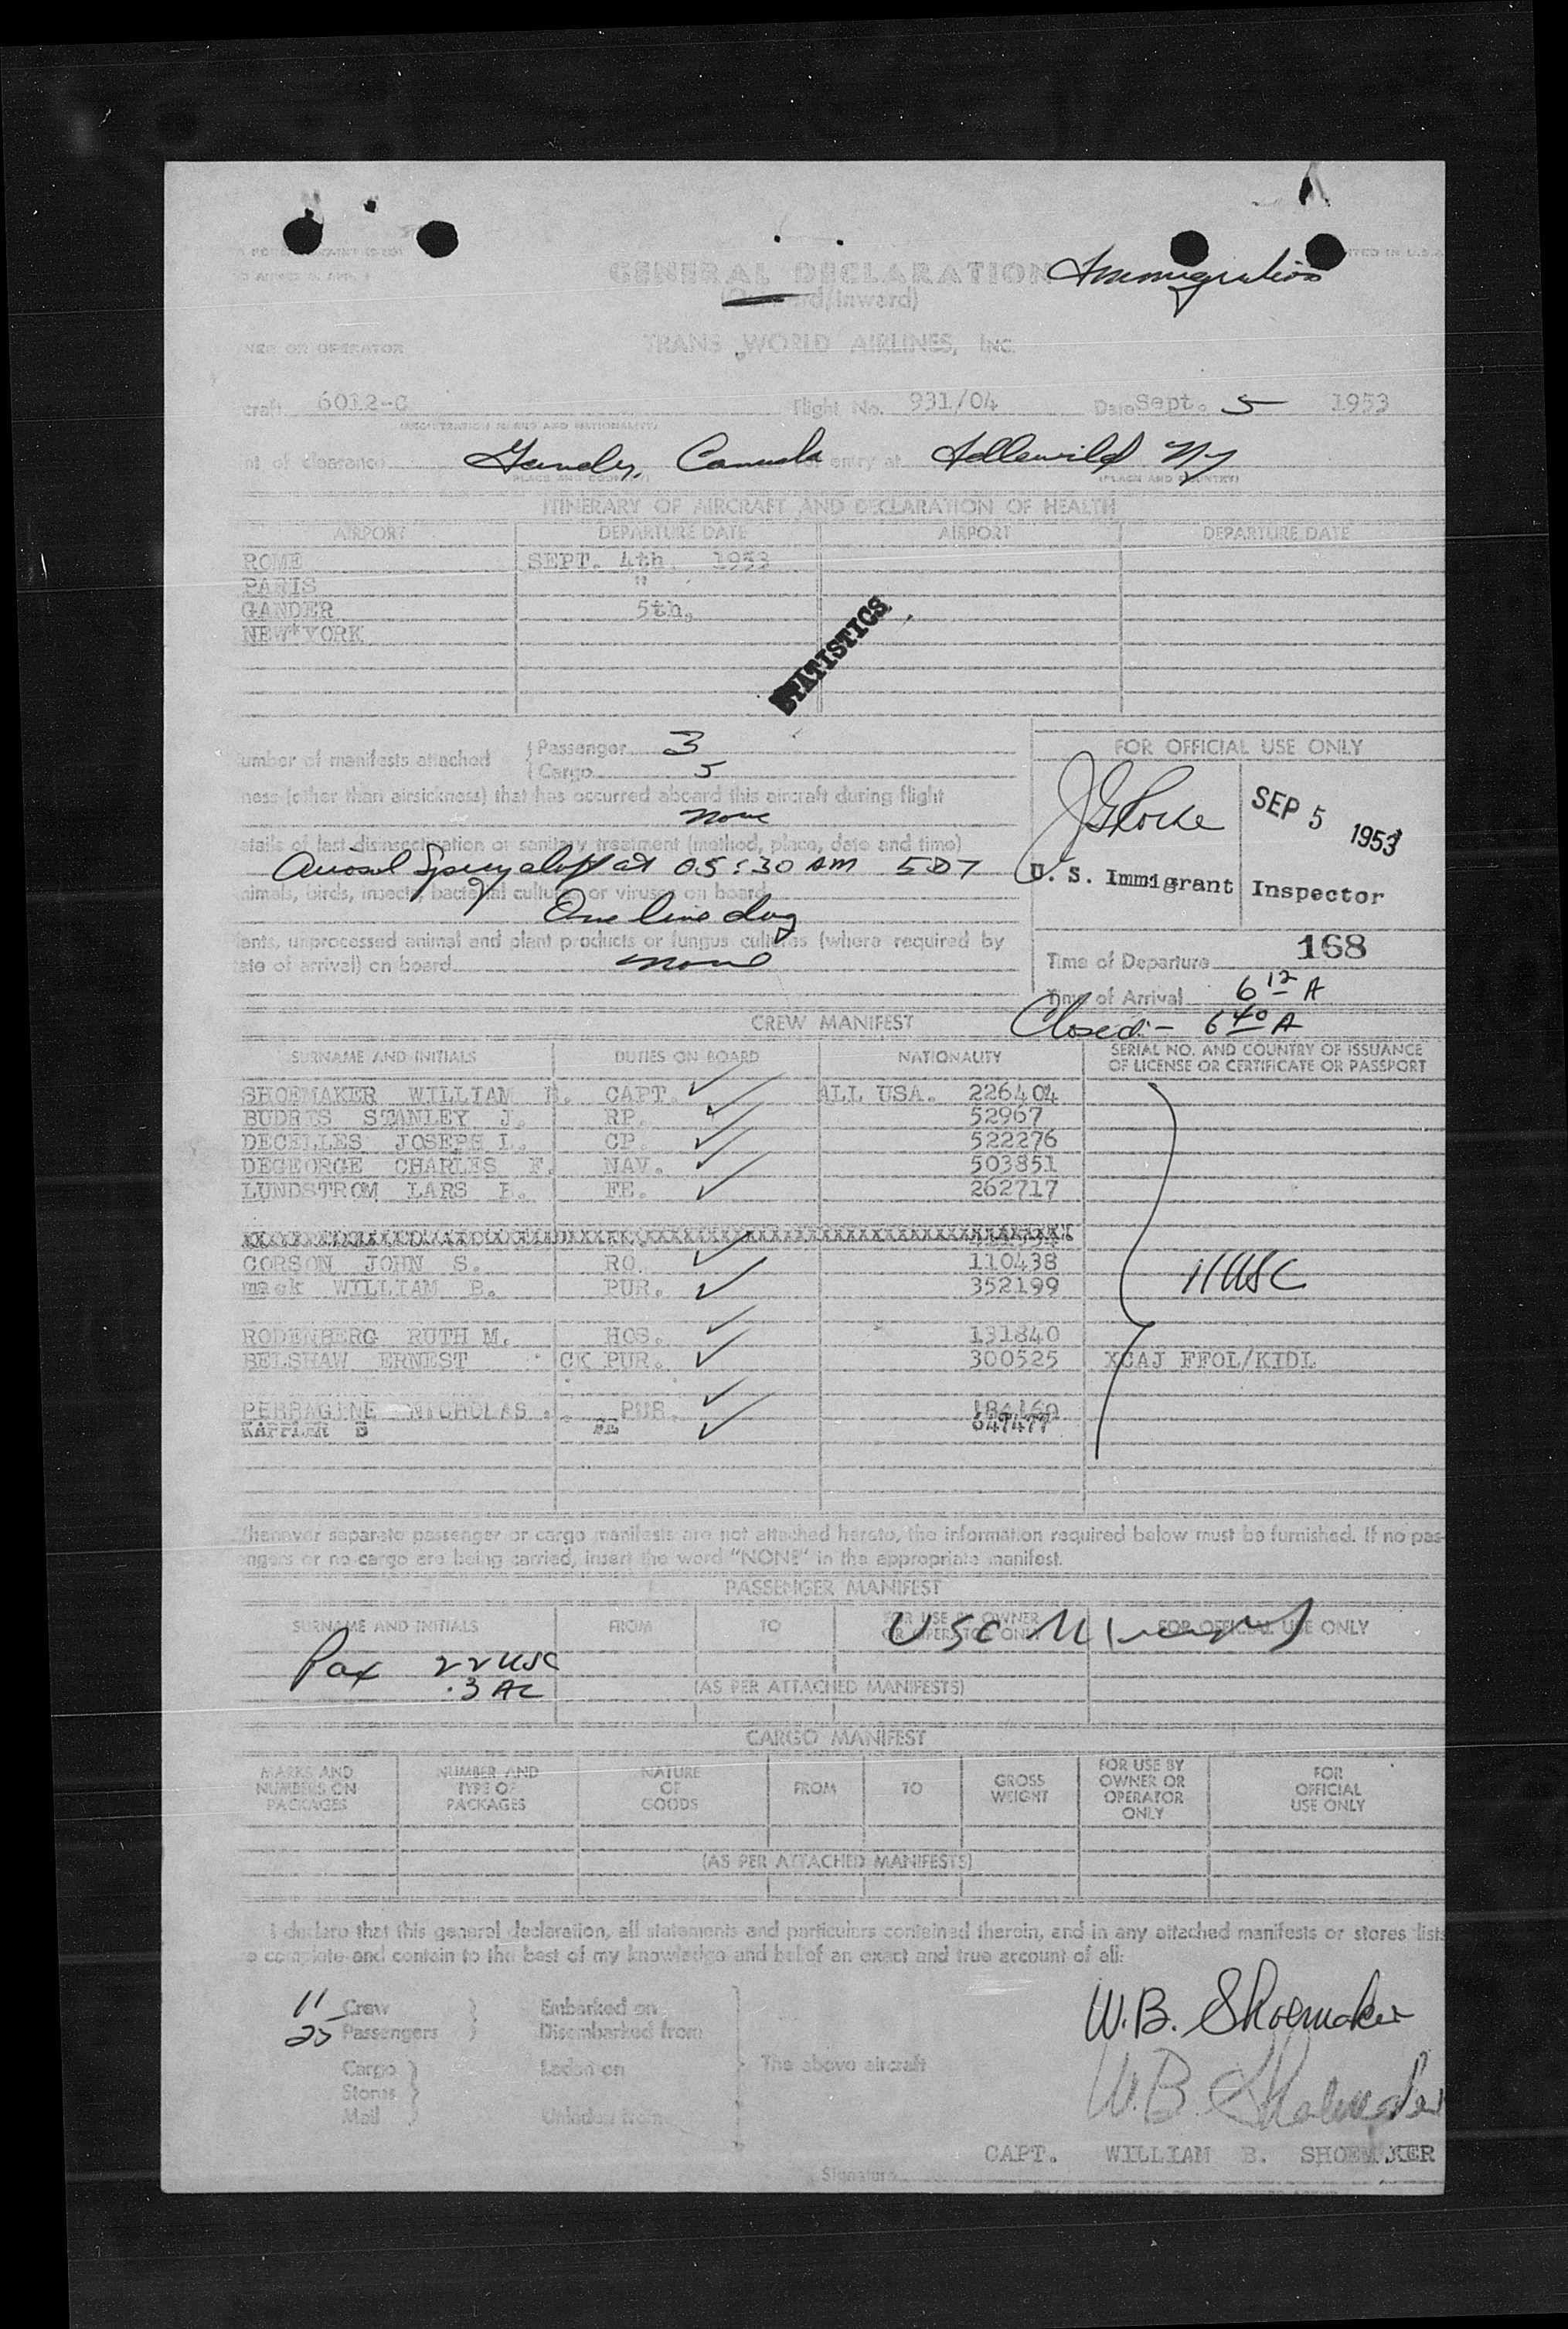 GENERAL DECLARATION
Immigration
(Outward/Inward)
NER OR OPERATOR
TRANS WORLD AIRLINES, INC.
craft 6012-C Flight No. 931/04 Date Sept. 5 1953
(REGISTRATION MARKS AND NATIONALITY)
nt of clearance Gander, Canada entry at Idlewild NY
(PLACE AND COUNTRY) (PLACE AND COUNTRY)
ITINERARY OF AIRCRAFT AND DECLARATION OF HEALTH
AIRPORT DEPARTURE DATE AIRPORT DEPARTURE DATE
ROME SEPT. 4th. 1953
PARIS "
GANDER 5th,
NEW YORK
STATISTICS
umber of manifests attached
Passenger 3
Cargo 5
FOR OFFICIAL USE ONLY
ness (other than airsickness) that has occurred aboard this aircraft during flight
none
SEP 5 1953
etails of last disinsectization or sanitary treatment (method, place, date and time)
Aerosol Spray aloft at 05:30 AM EDT
U. S. Immigrant Inspector
nimals, birds, insects, bacterial cultures or viruses on board
One live dog
lants, unprocessed animal and plant products or fungus cultures (where required by
tate of arrival) on board none
168
Time of Departure
Time of Arrival 6 12 A
Closed:- 6 40 A
CREW MANIFEST
SURNAME AND INITIALS DUTIES ON BOARD NATIONALITY SERIAL NO. AND COUNTRY OF ISSUANCE OF LICENSE OR CERTIFICATE OR PASSPORT
SHOEMAKER WILLIAM B. CAPT. ALL USA. 226404
BUDRIS STANLEY J. RP. 52967
DECELLES JOSEPH L. CP. 522276
DEGEORGE CHARLES F. NAV. 503851
LUNDSTROM LARS FE. 262717
CORSON JOHN S. RO. 110438
mack WILLIAM B. PUR. 352199
11 USC
RODENBERG RUTH M. HOS. 131840
BELSHAW ERNEST CK PUR. 300525 XCAJ FFOL/KIDL
PERRAGINE NICHOLAS . PUR. 184160
KAPPLER B FE 647477
Whenever separate passenger or cargo manifests are not attached hereto, the information required below must be furnished. If no pas-
engers or no cargo are being carried, insert the word "NONE" in the appropriate manifest.
PASSENGER MANIFEST
SURNAME AND INITIALS FROM TO FOR USE BY OWNER OR OPERATOR ONLY FOR OFFICIAL USE ONLY
USC
Pax 22 USC
3 AL
(AS PER ATTACHED MANIFESTS)
CARGO MANIFEST
MARKS AND NUMBERS ON PACKAGES NUMBER AND TYPE OF PACKAGES NATURE OF GOODS FROM TO GROSS WEIGHT FOR USE BY OWNER OR OPERATOR ONLY FOR OFFICIAL USE ONLY
(AS PER ATTACHED MANIFESTS)
I declare that this general declaration, all statements and particulars contained therein, and in any attached manifests or stores lists
e complete and contain to the best of my knowledge and belief an exact and true account of all:
11 Crew Embarked on
25 Passengers Disembarked from
W.B. Shoemaker
Cargo Laden on The above aircraft
Stores
Mail Unladen from
W.B. Shoemaker
CAPT. WILLIAM B. SHOEMAKER
Signature